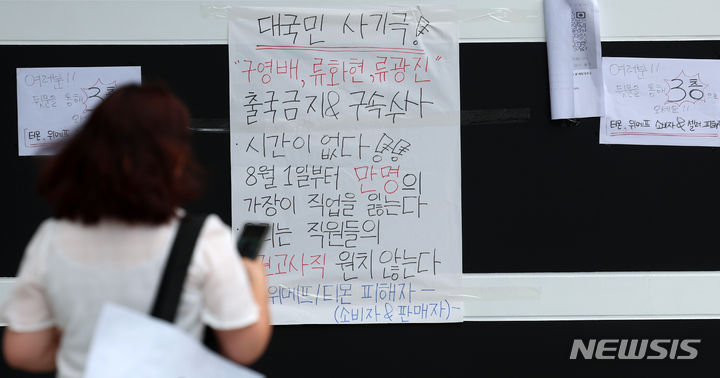 대국민 사기극
"구영배, 류화현, 류광진"
출국금지 & 구속수사
· 시간이 없다
8월 1일부터 만명의
가장이 직업을 잃는다
는 직원들의
고사직 원치 않는다
위메프/티몬 피해자 –
(소비자 & 판매자) –
여러분!!
뒷문을 통해 3
티몬, 위메프
여러분!!
뒷문을 통해 3층으로
오세요!!
티몬, 위메프 소비자 & 셀러 피해
NEWSIS